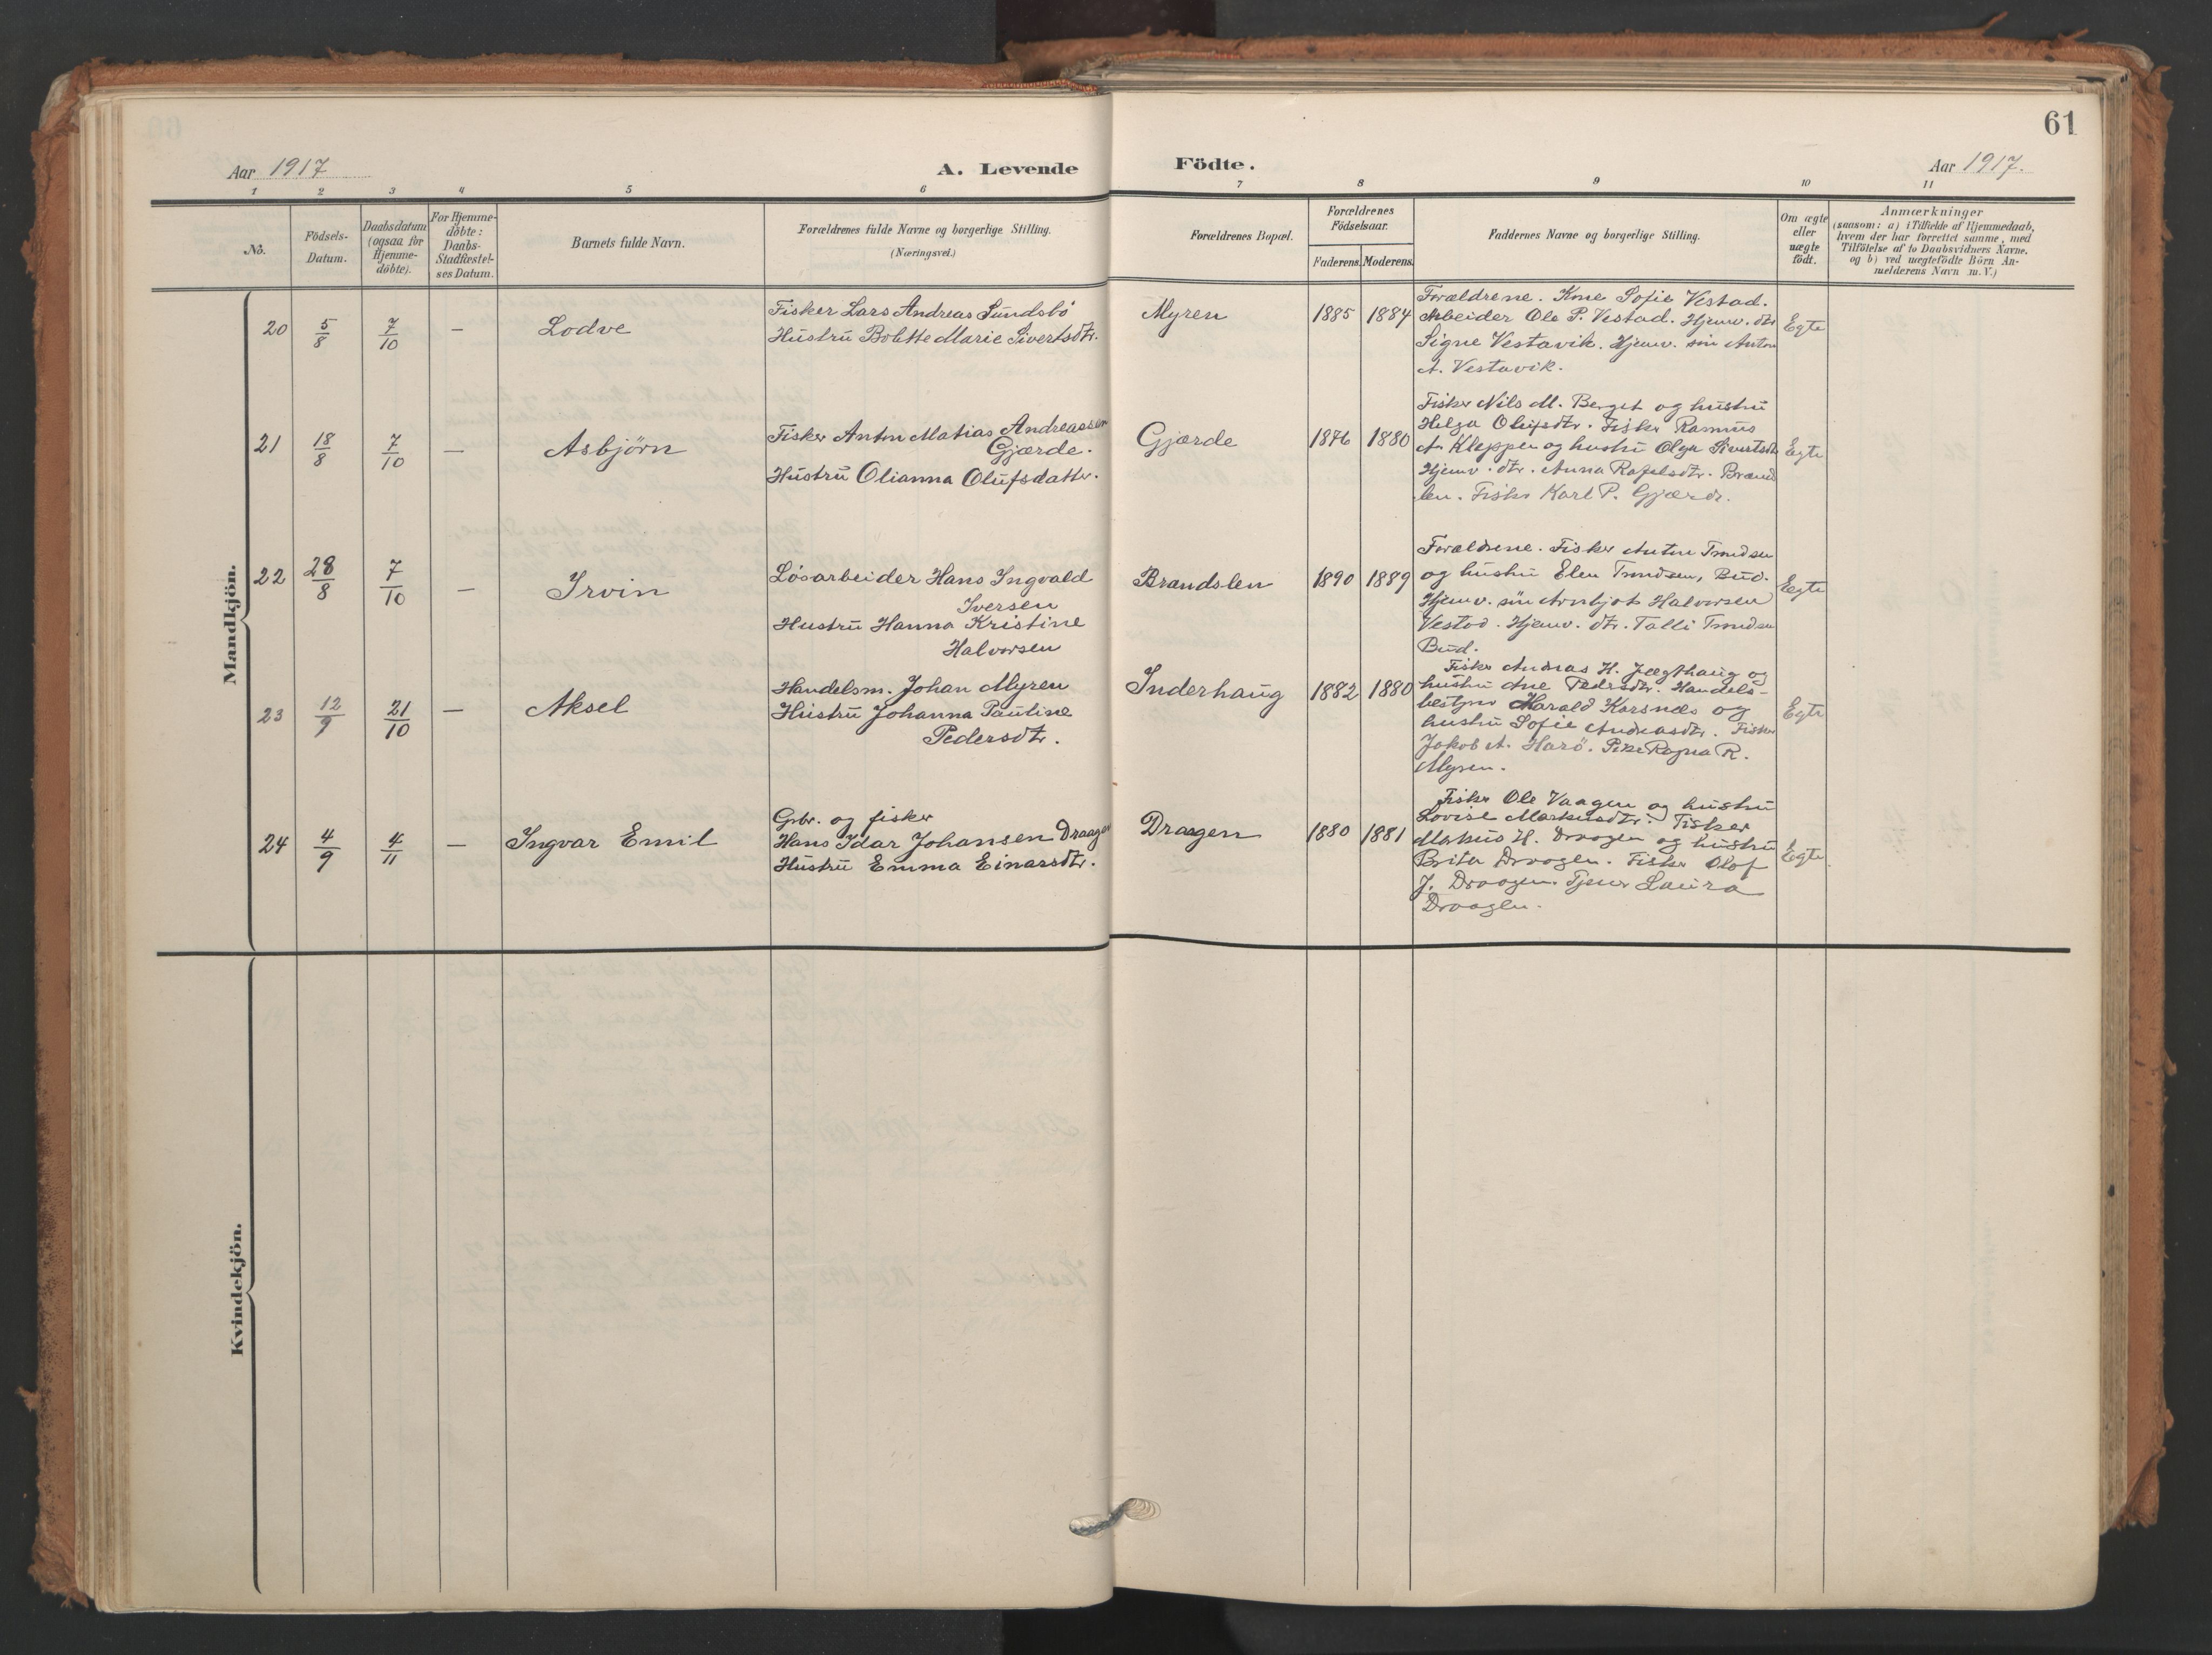 61
Aar 1917
A. Levende Födte.
Aar 1917.
1 2 3 4 5 6 7 8 9 10 11
No.
Födsels-Datum.
Daabsdatum (ogsaa for Hjemme-döbte).
For Hjemme-döbte: Daabs-Stadfæstel-ses Datum.
Barnets fulde Navn.
Forældrenes fulde Navne og borgerlige Stilling.
(Næringsvei.)
Forældrenes Bopæl.
Forældrenes Födselsaar.
Faderens. Moderens.
Faddernes Navne og borgerlige Stilling.
Om ægte eller uægte födt.
Anmærkninger
(saasom: a) i Tilfælde af Hjemmedaab,
hvem der har forrettet samme, med
Tilföielse af to Daabsvidners Navne,
og b) ved uægtefödte Börn An-
melderens Navn m. V.)
Mandkjön.
20 5/8 7/10 — Lodve
Fisker Lars Andreas Sundsbö
Hustru Bolette Marie Sivertsdtr.
Myren 1885 1884
Forældrene. Kone Sofie Vestad.
Arbeider Ole P. Vestad. Hjemv. dtr
Signe Vestavik. Hjemv. sön Anton
A. Vestavik.
Egte
21 18/8 7/10 — Asbjörn
Fisker Anton Matias Andreassen
Gjærde.
Hustru Olianna Olufsdatter.
Gjærde 1876 1880
Fisker Nils M. Berget og hustru
Helga Olufsdtr. Fisker Rasmus
A. Kleppen og hustru Olga Sivertsdtr
Hjemv. dtr. Anna Rafelsdtr. Brand
len. Fisker Karl P. Gjærde.
Egte
22 28/8 7/10 — Irvin
Lösarbeider Hans Ingvald
Iversen
Hustru Hanna Kristine
Halvorsen
Brandslen 1890 1889
Forældrene. Fisker Anton Trondsen
og hustru Elen Trondsen, Bud.
Hjemv. sön Arnbjot Halvorsen
Vestad. Hjemv. dtr. Talli Trondsen
Bud.
Egte
23 12/9 21/10 — Aksel
Handelsm. Johan Myren
Hustru Johanna Pauline
Pedersdtr.
Inderhaug 1882 1880
Fisker Andreas H. Jægthaug og
hustru Ane Pedersdtr. Handels-
bestyrer Harald Korsnes og
hustru Sofie Andreasdtr. Fisker
Jakob A. Harö. Pike Ragna R.
Myren.
Egte
24 4/9 4/11 — Ingvar Emil
Gbr. og fisker
Hans Idar Johansen Draagen
Hustru Emma Einarsdtr.
Draagen 1880 1881
Fisker Ole Vaagen og hustru
Lovise Markusdtr. Fisker
Markus H. Draagen og hustru
Brita Draagen. Fisker Olof
J. Draagen. Tjener Laura
Draagen.
Egte.
Kvindekjön.